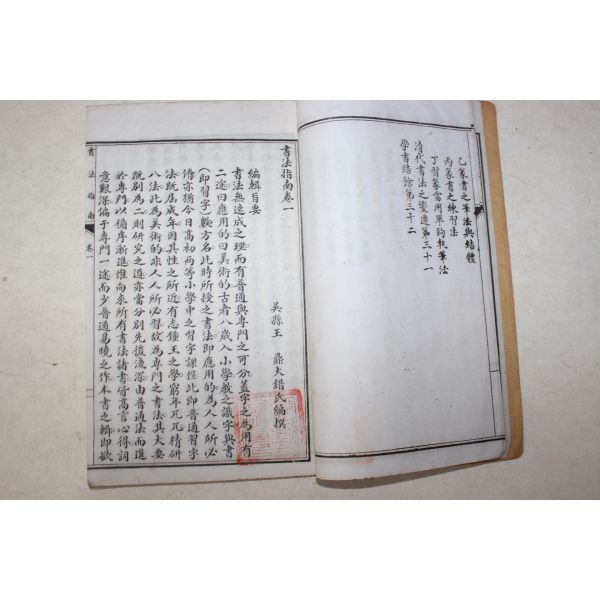 乙篆書之筆法與結體
丙篆書之練習法
丁習篆當用單鈎執筆法
清代書法之變遷第三十一
學書結餘第三十二
書法指南卷一
吳縣王 鼎大錯氏編撰
編輯旨要
書法無速成之理而有普通與專門之可分蓋字之為用有
二途曰應用的曰美術的古者八歲入小學教之識字與書
(即習字)數方名此時所授之書法即應用的為人人所必
脩亦猶今日高初兩等小學中之習字課程此即普通習字
法既屆成年因其性之所近有志鍾王之學窮年兀兀精研
八法此為美術的非人人所必習故為專門之書法其大要
既別為二則研究之道亦當分別先後淺深由普通法而進
於專門以循序漸進惟向來所有書法諸書皆高言心得詞
意艱深偏于專門一途而少普通易曉之作本書之輯即欲
書法指南 卷一